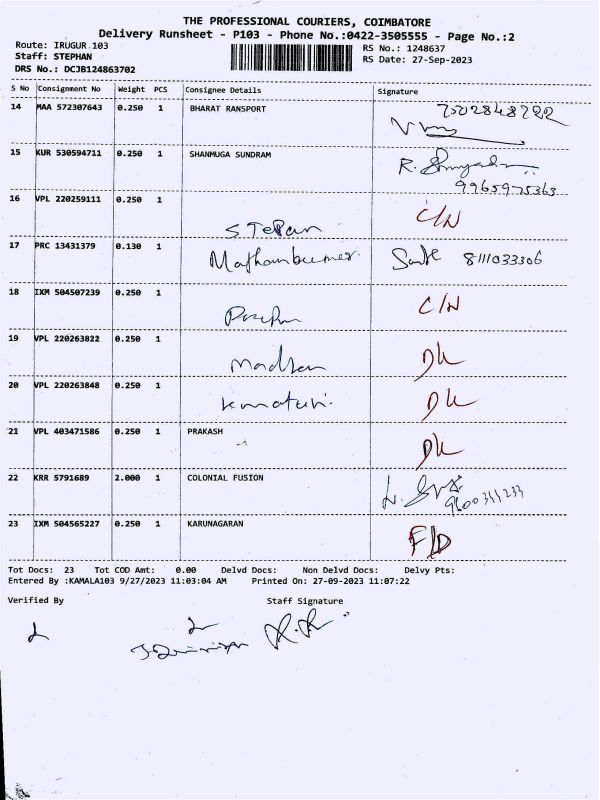 THE PROFESSIONAL COURIERS, COIMBATORE
Delivery Runsheet - P103 - Phone No.:0422-3505555 - Page No.:2
Route: IRUGUR 103
RS No.: 1248637
Staff: STEPHAN
RS Date: 27-Sep-2023
DRS No.: DCJB124863702
S No Consignment No Weight PCS Consignee Details Signature
14 MAA 572307643 0.250 1 BHARAT RANSPORT
15 KUR 530594711 0.250 1 SHANMUGA SUNDRAM
9965975363
16 VPL 220259111 0.250 1 STePan C/N
17 PRC 13431379 0.130 1 8111033306
18 IXM 504507239 0.250 1 C/N
19 VPL 220263822 0.250 1 DL
20 VPL 220263848 0.250 1 DL
21 VPL 403471586 0.250 1 PRAKASH DL
22 KRR 5791689 2.000 1 COLONIAL FUSION
23 IXM 504565227 0.250 1 KARUNAGARAN F/D
Tot Docs: 23 Tot COD Amt: 0.00 Delvd Docs: Non Delvd Docs: Delvy Pts:
Entered By :KAMALA103 9/27/2023 11:03:04 AM Printed On: 27-09-2023 11:07:22
Verified By Staff Signature